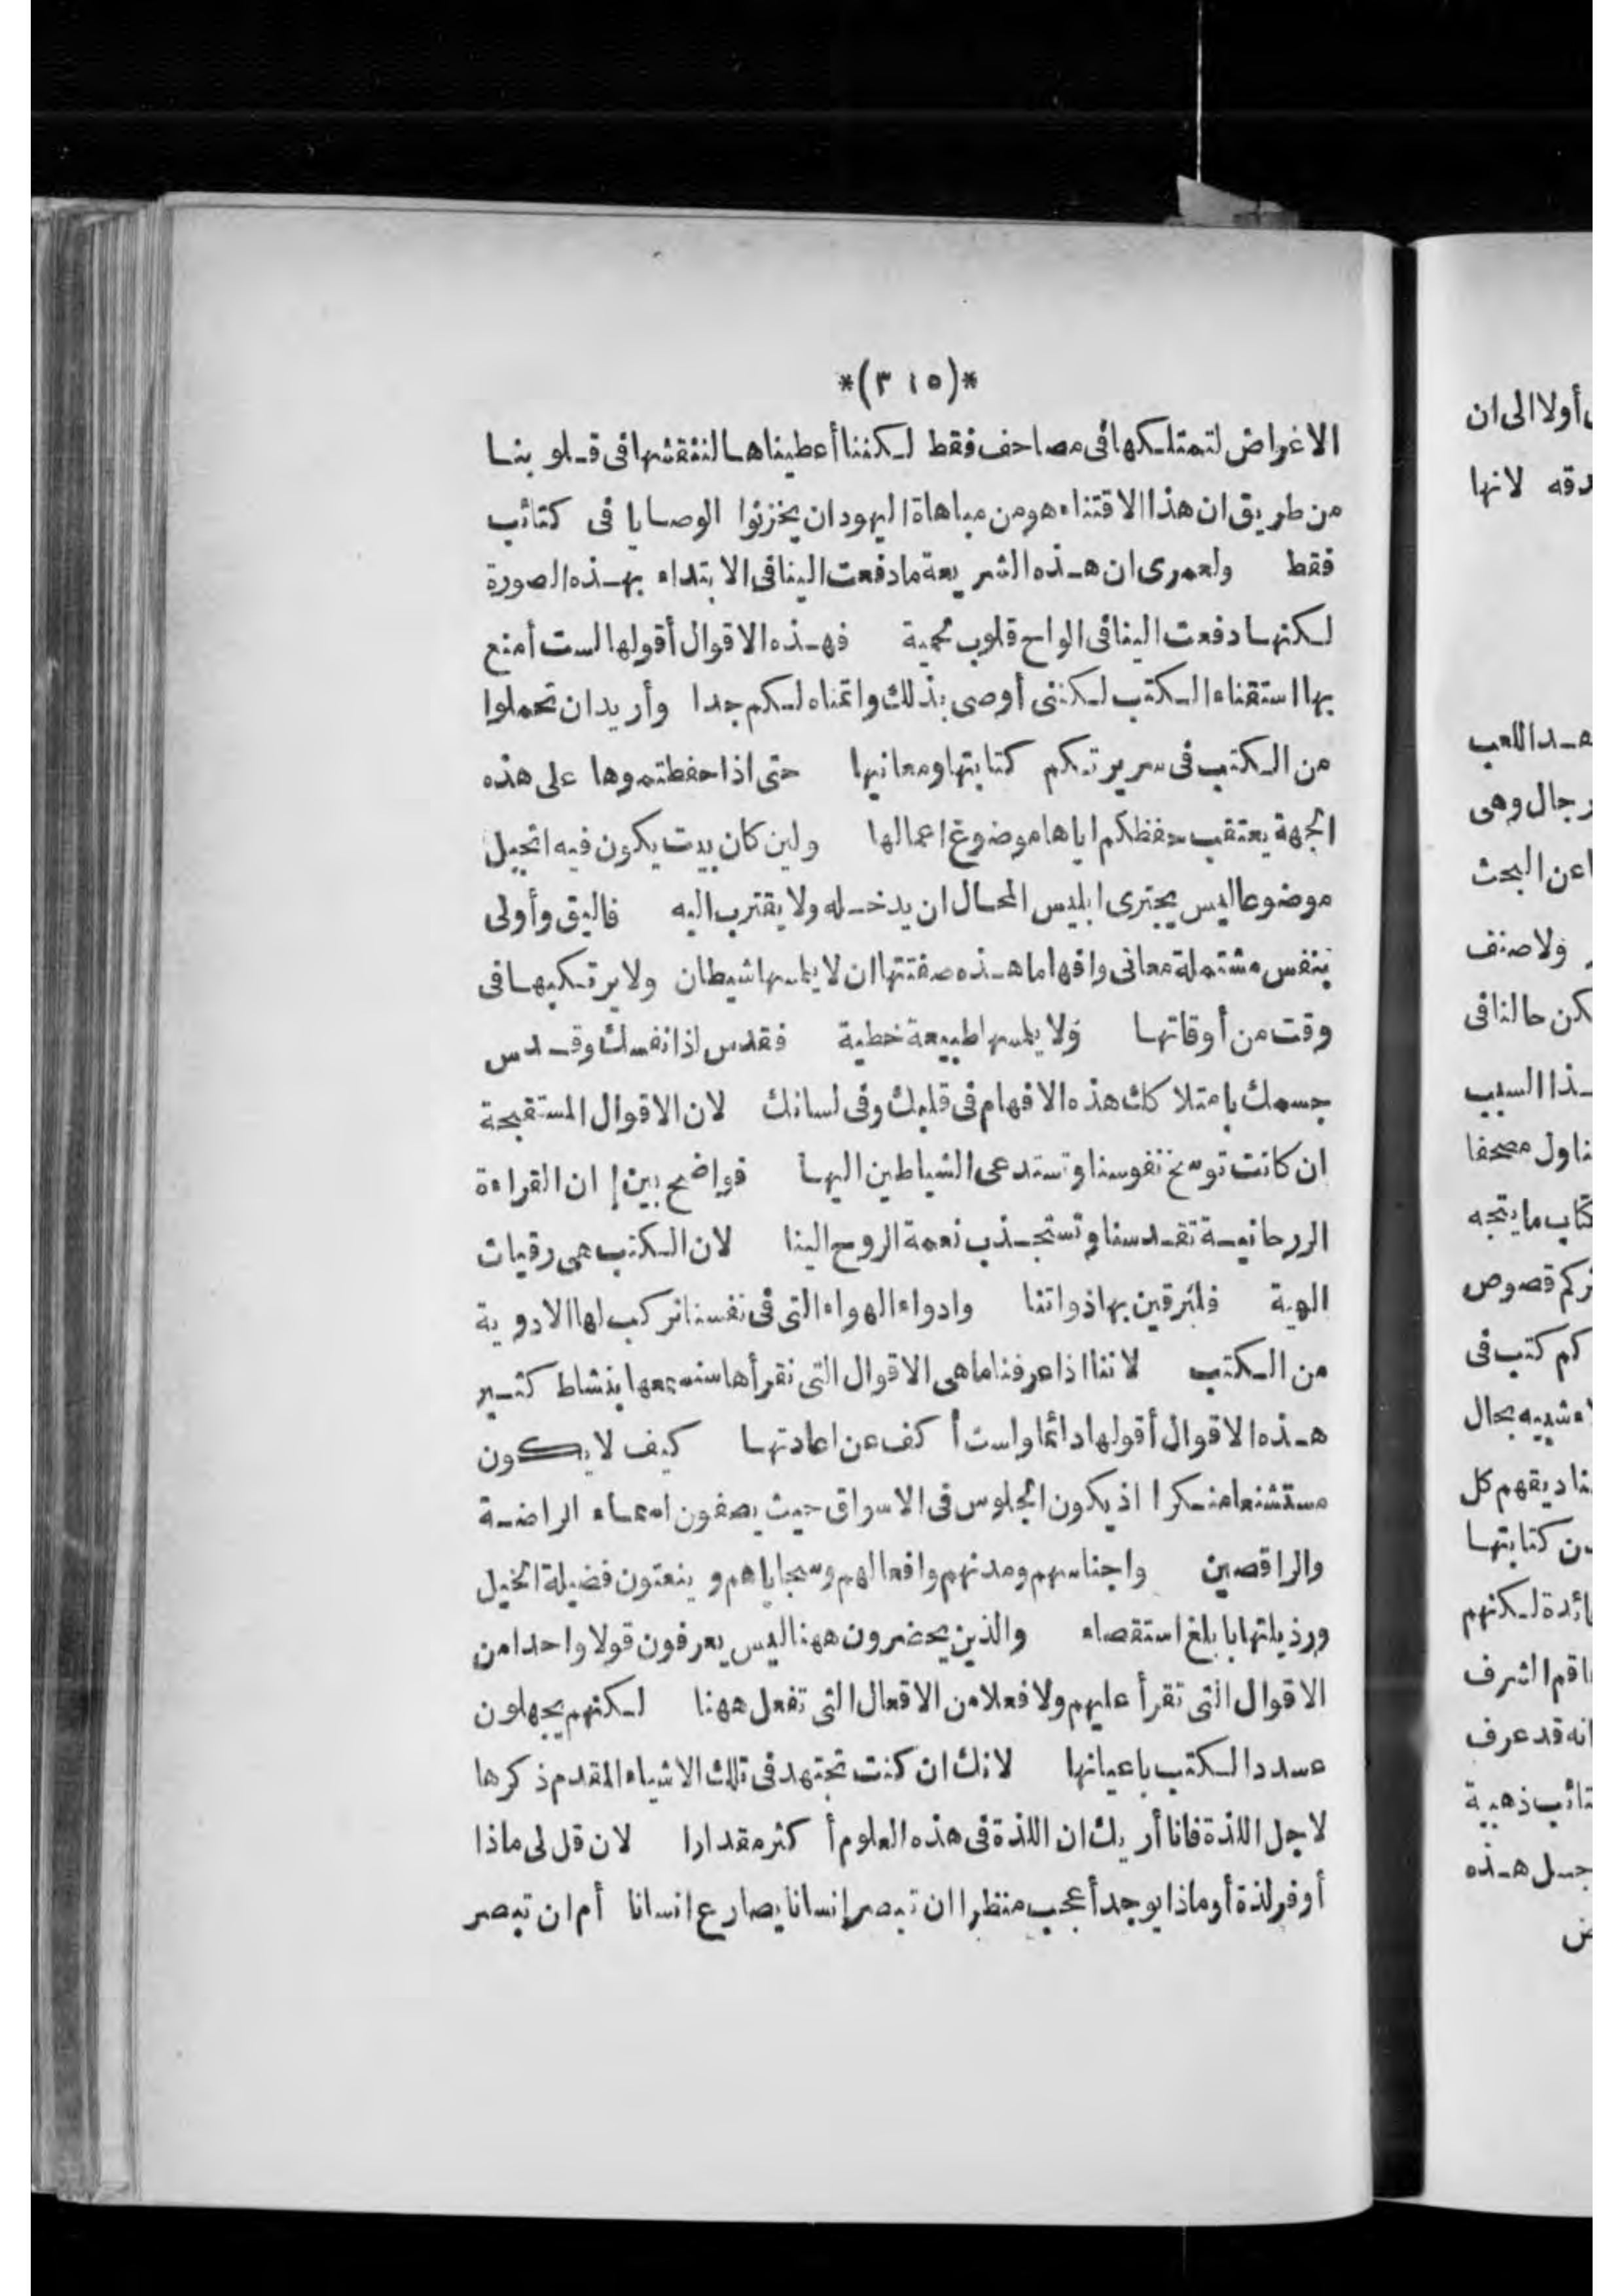 *(٣١٥)*
الاغراض لتمتلكها فى مصاحف فقط لكننا أعطيناها لننقشها فى قلوبنا
من طريق ان هذا الاقتناء هو من مباهاة اليهود ان يخزنوا الوصايا فى كتائب
فقط ولعمرى ان هذه الشريعة مادفعت الينا فى الابتداء بهذه الصورة
لكنها دفعت الينا فى الواح قلوب لحمية فهذه الاقوال أقولها لست أمنع
بها استقناء الكتب لكننى أوصى بذلك واتمناه لكم جدا وأريد ان تحملوا
من الكتب فى سريرتكم كتابتها ومعانيها حتى اذا حفظتموها على هذه
الجهة يعتقب حفظكم اياها موضوع اعمالها ولين كان بيت يكون فيه انجيل
موضوعا ليس يجترى ابليس المحال ان يدخله ولا يقترب اليه فاليق وأولى
بنفس مشتملة معانى وافهاما هذه صفتتها ان لا يلمسها شيطان ولا يرتكبها فى
وقت من أوقاتها ولا يلمسها طبيعة خطية فقدس اذا نفسك وقدس
جسمك بامتلاكك هذه الافهام فى قلبك وفى لسانك لان الاقوال المستقبحة
ان كانت توسخ نفوسنا وتستدعى الشياطين اليها فواضح بين إ ان القراءة
الررحانية تقدسنا وتستجذب نعمة الروح الينا لان الكتب هى رقيات
الهية فلنرقين بها ذواتنا وادواء الهواء التى فى نفسنا نركب لها الادوية
من الكتب لاننا اذا عرفنا ما هى الاقوال التى نقرأها سنسمعها بنشاط كثير
هذه الاقوال أقولها دائما ولست أكف عن اعادتها كيف لا يكون
مستشنعا منكرا اذ يكون الجلوس فى الاسواق حيث يصفون اسماء الراضة
والراقصين واجناسهم ومدنهم وافعالهم وسجاياهم وينعتون فضيلة الخيل
ورذيلتها بابلغ استقصاء والذين يحضرون ههنا ليس يعرفون قولا واحدا من
الاقوال التى تقرأ عليهم ولا فعلا من الافعال التى تفعل ههنا لكنهم يجهلون
عدد الكتب باعيانها لانك ان كنت تجتهد فى تلك الاشياء المقدم ذكرها
لاجل اللذة فانا أريك ان اللذة فى هذه العلوم أكثر مقدارا لان قل لى ماذا
أوفر لذة أو ماذا يوجد أعجب منظرا ان تبصر إنسانا يصارع انسانا أم ان تبصر
أولا الى ان
لانها
اللعب
رجال وهى
عن البحث
ولا صنف
حالنا فى
السبب
مصحفا
ما يتجه
قصوص
كم كتب فى
شبيه بحال
كل
كتابتها
لكنهم
الشرف
انه قد عرف
ذهبية
هذه
ض